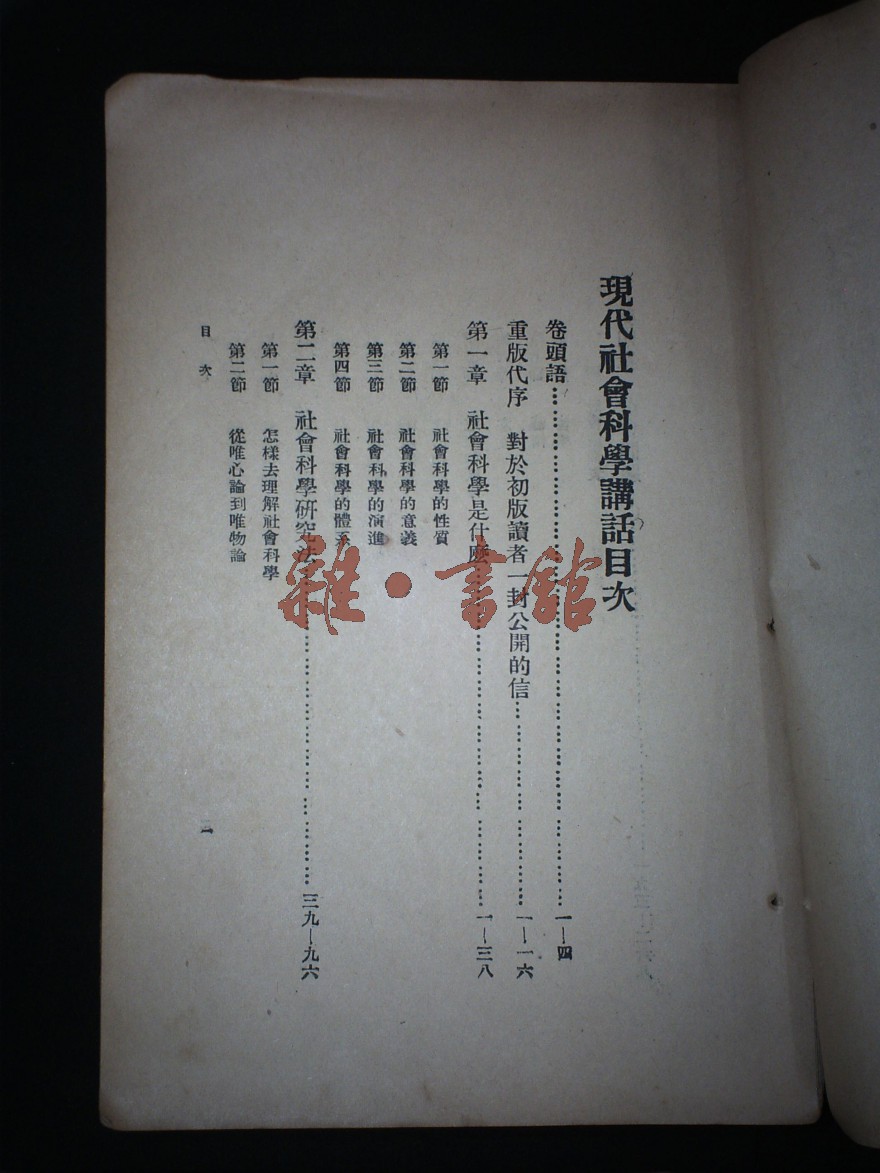 現代社會科學講話目次
卷頭語……一—四
重版代序　對於初版讀者一封公開的信……一—一六
第一章　社會科學是什麼……一—三八
第一節　社會科學的性質
第二節　社會科學的意義
第三節　社會科學的演進
第四節　社會科學的體系
第二章　社會科學研究法……三九—九六
第一節　怎樣去理解社會科學
第二節　從唯心論到唯物論
目次
雜·書館